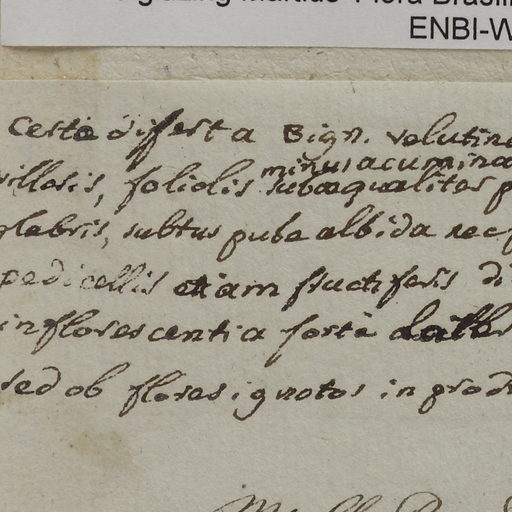 Martius' Flora Brasili
ENBI-W
certe differt a Bign. velutina
minus acumina
villosis, foliolis subaequalites p
glabris, subtus pube albida nec p
pedicellis etiam fructiferis di
inflorescentia forte
sed ob flores ignotos in prod